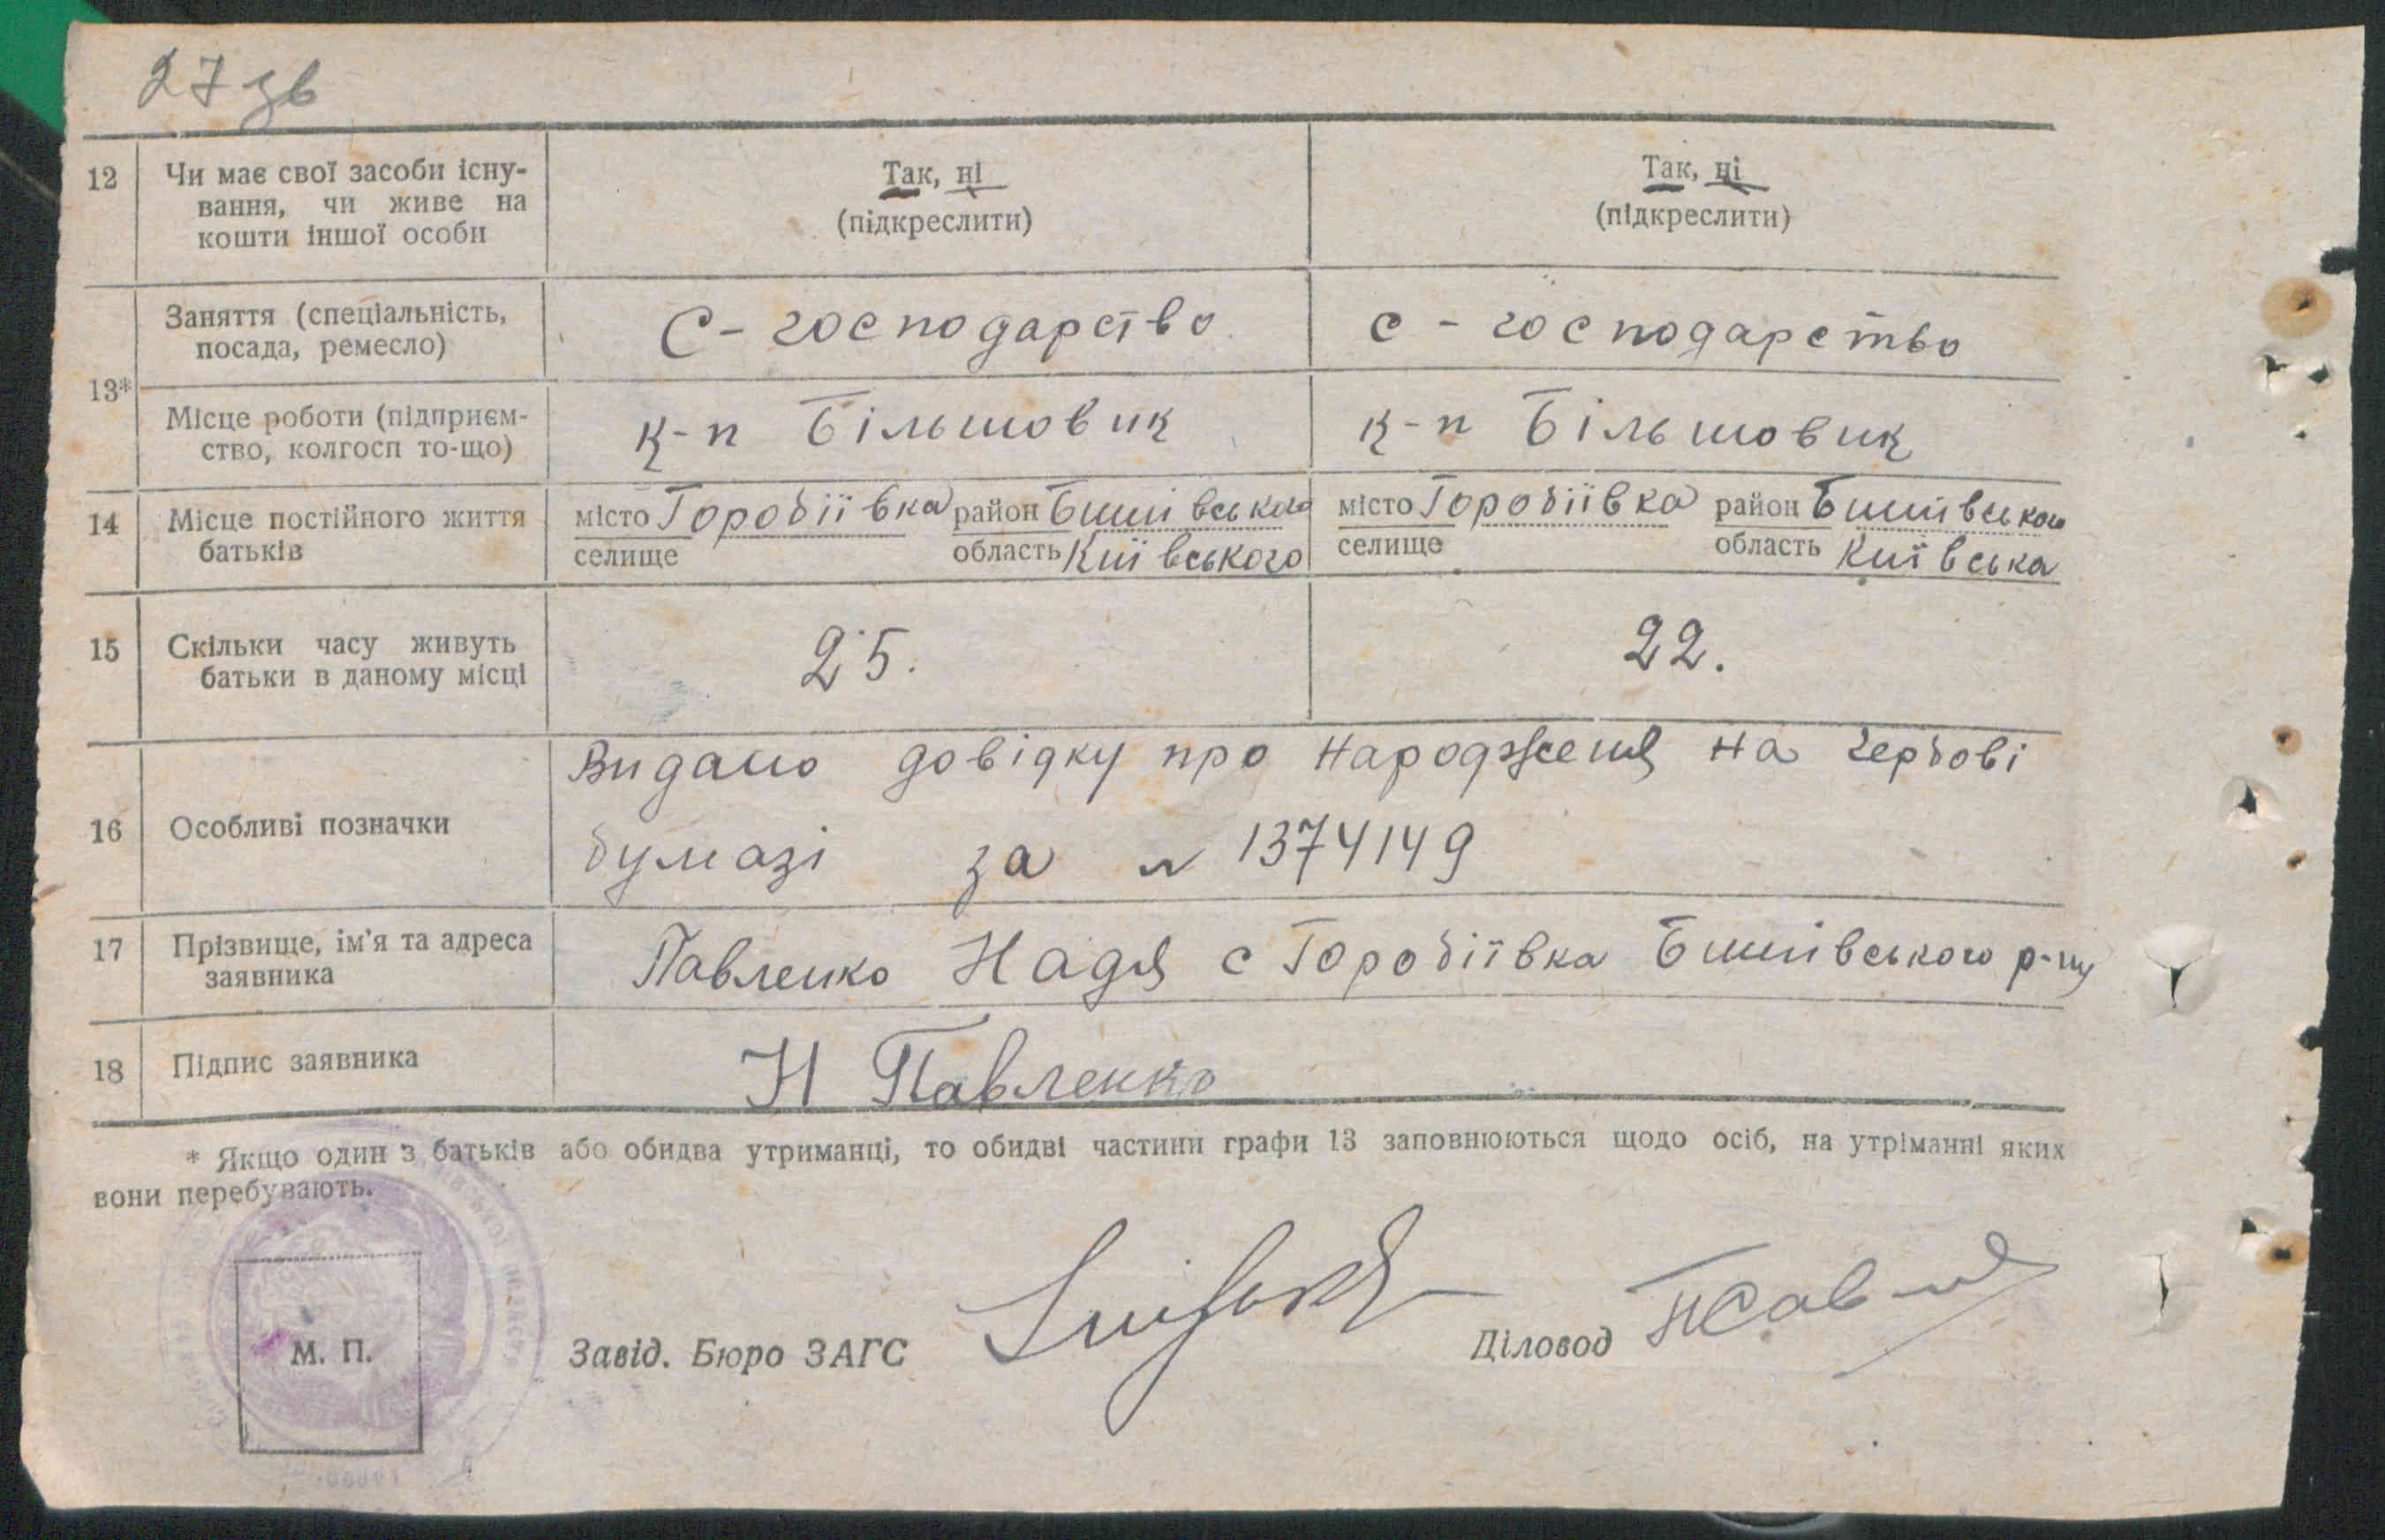 27 зв
12 Чи має свої засоби існу- Так, ні Так, ні
вання, чи живе на (підкреслити) (підкреслити)
кошти іншої особи
13* Заняття (спеціальність, С-господарство с-господарство
посада, ремесло)
Місце роботи (підприєм- к-п Більшовик к-п Більшовик
ство, колгосп то-що)
14 Місце постійного життя місто Горобіївка район Бишівського місто Горобіївка район Бишівського
батьків селище область Київського селище область Київська
15 Скільки часу живуть 25. 22.
батьки в даному місці
Видано довідку про народження на гербові
16 Особливі позначки
бумазі за № 1374149
17 Прізвище, ім'я та адреса Павленко Надя с Горобіївка Бишівського р-ну
заявника
18 Підпис заявника Н Павленко
* Якщо один з батьків або обидва утриманці, то обидві частини графи 13 заповнюються щодо осіб, на утріманні яких
вони перебувають.
М. П. Завід. Бюро ЗАГС Діловод